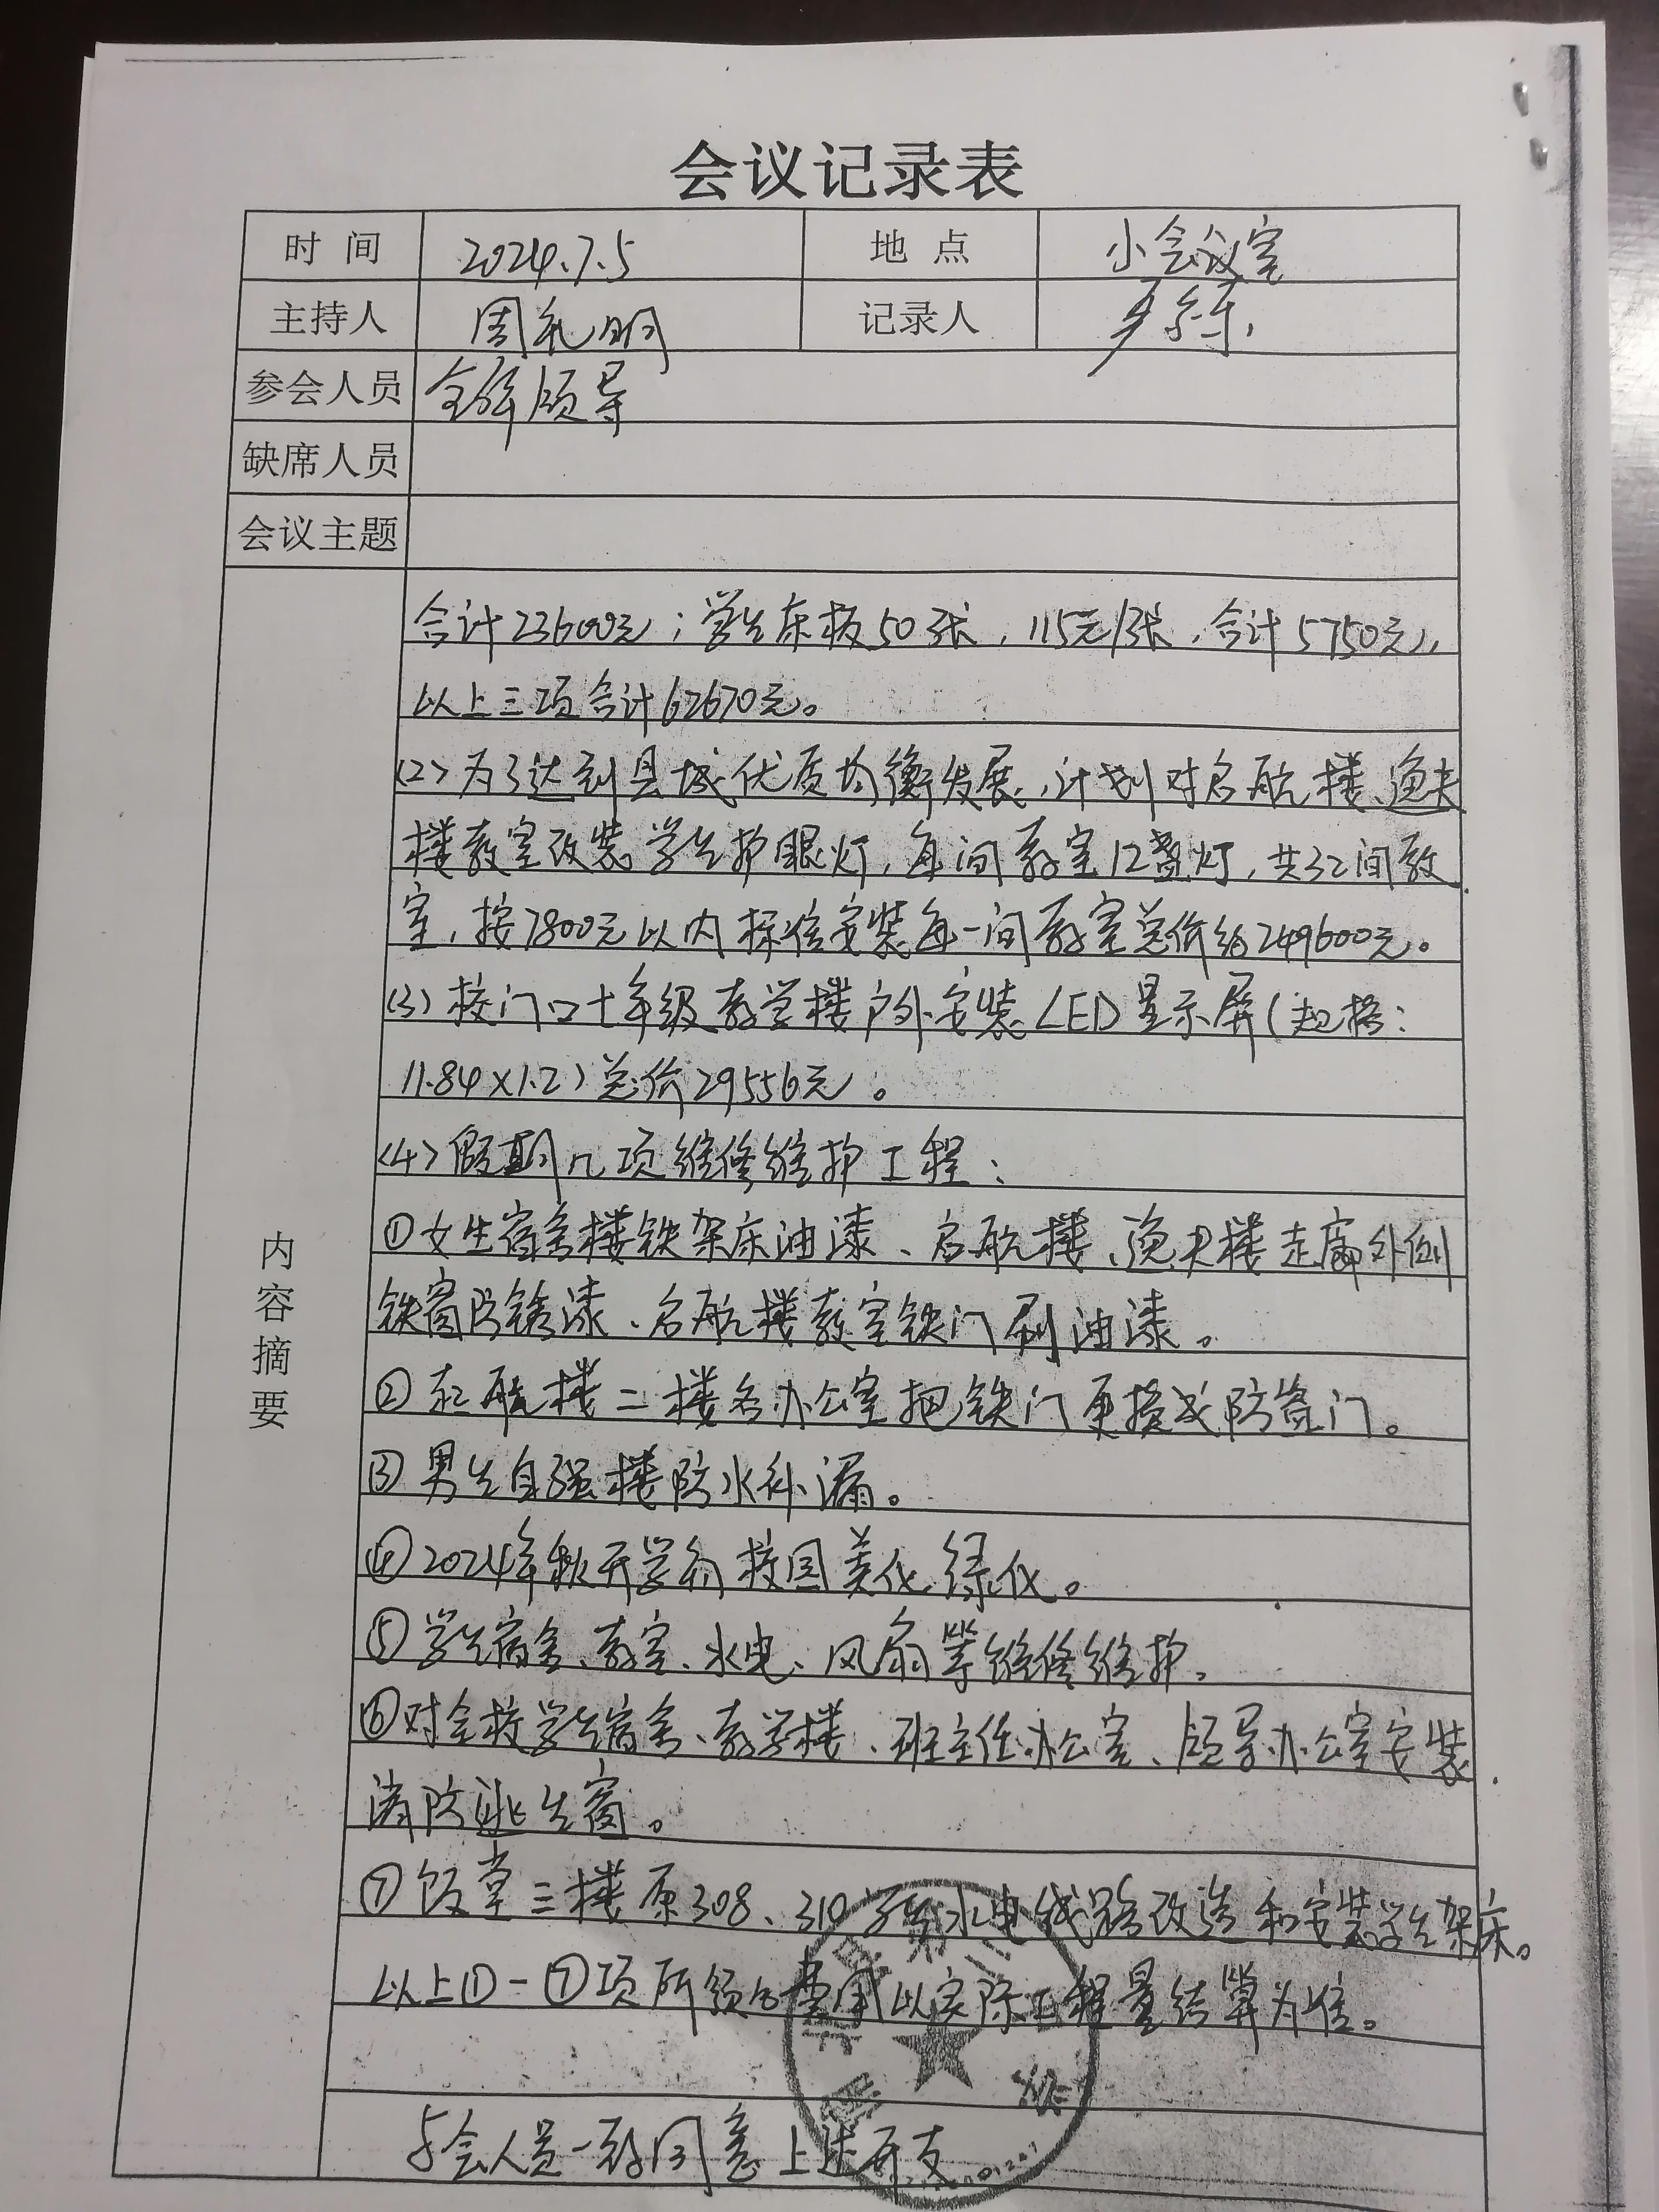 会议记录表
时 间 2024.7.5 地 点 小会议室
主持人 周礼明 记录人
参会人员 全体领导
缺席人员
会议主题
内容摘要
合计23600元；学生床板50张，115元/张，合计5750元），
以上三项合计62670元。
(2)为了达到县域优质均衡发展，计划对启航楼、逸夫
楼教室改装学生护眼灯，每间教室12盏灯，共32间教
室，按7800元以内标准安装每一间教室总价约249600元。
(3)校门口七年级教学楼户外安装LED显示屏(规格：
11.84×1.2)总价29556元。
(4)假期几项维修维护工程：
①女生宿舍楼铁架床油漆、启航楼、逸夫楼走廊外侧
铁窗防锈漆、启航楼教室铁门刷油漆。
②启航楼二楼各办公室把铁门更换成防盗门。
③男生自强楼防水补漏。
④2024年秋开学前校园美化绿化。
⑤学生宿舍、教室、水电、风扇等维修维护。
⑥对全校学生宿舍、教学楼、班主任办公室、领导办公室安装
消防逃生窗。
⑦饭堂三楼原308、310水电线路改造和安装学生架床。
以上①-⑦项所须的费用以实际工程量结算为准。
与会人员一致同意上述开支